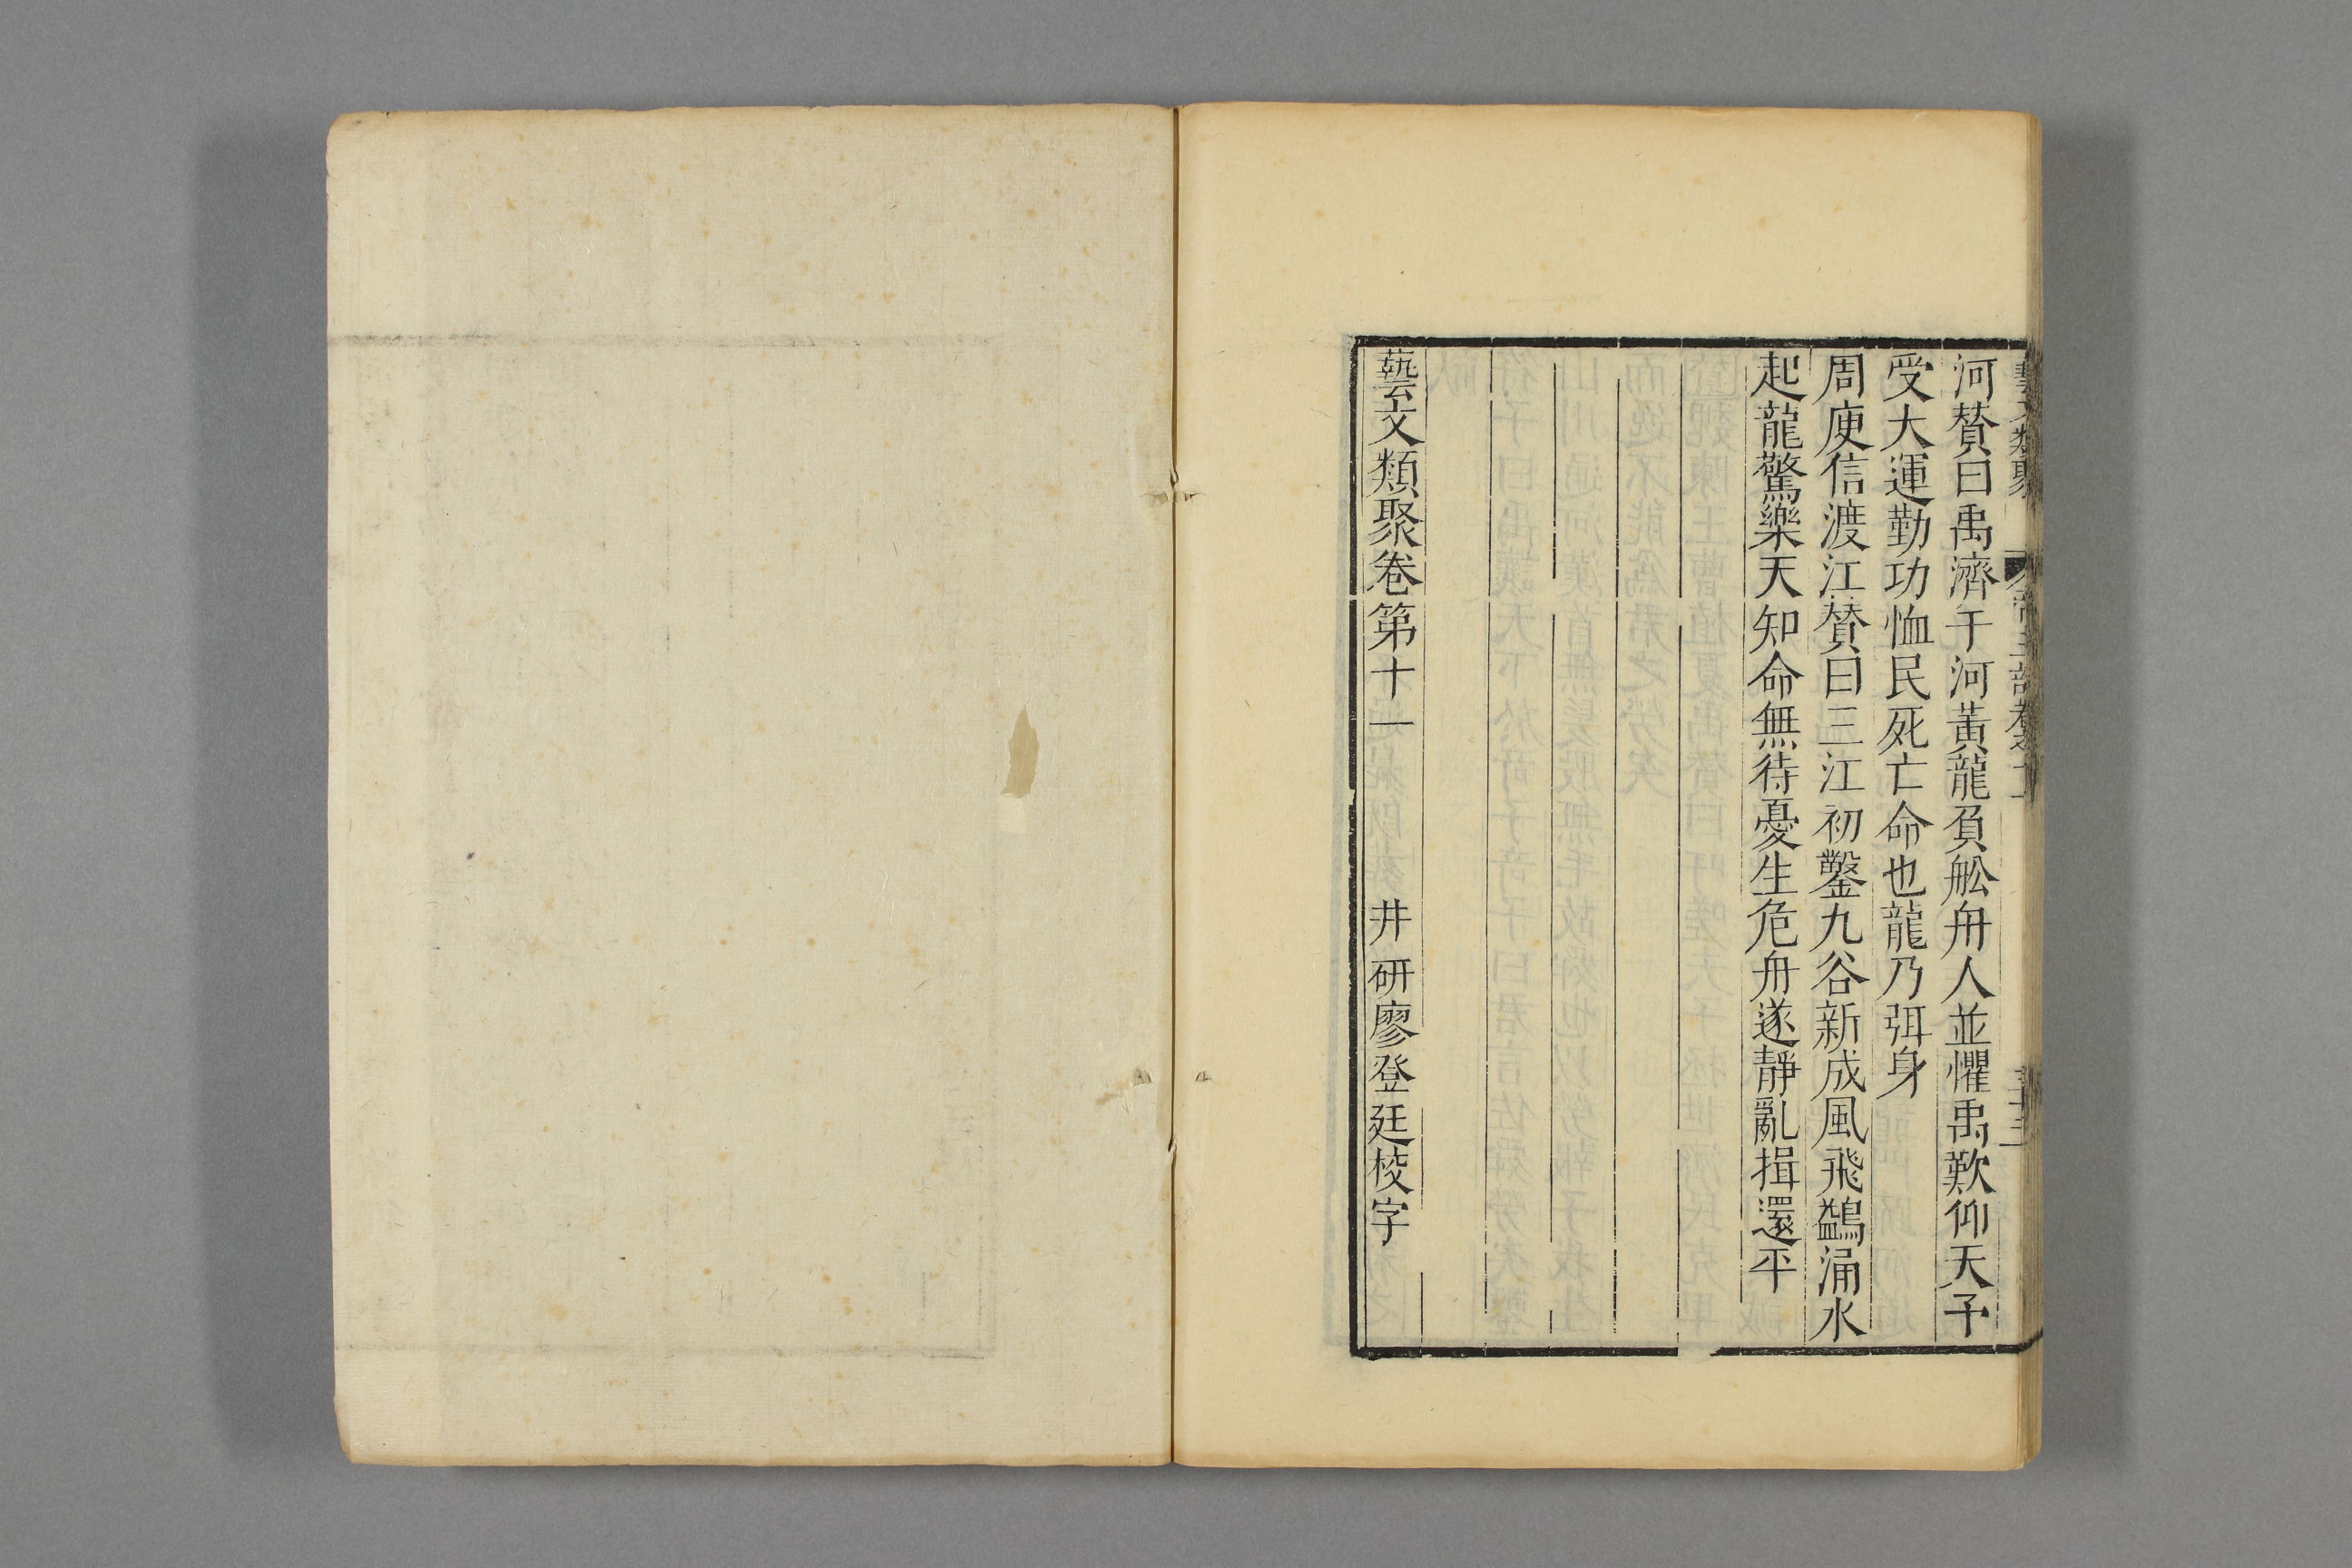 藝文類聚 帝王部卷之十一 三十三
河賛曰禹濟于河黃龍負舩舟人並懼禹歎仰天予
受大運勤功恤民死亡命也龍乃弭身
周庾信渡江賛曰三江初鑿九谷新成風飛鷁涌水
起龍驚樂天知命無待憂生危舟遂靜亂揖還平
藝文類聚卷第十一 井研廖登廷校字